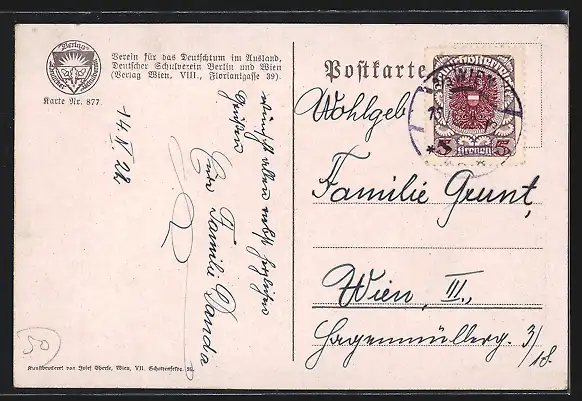 Verein für das Deutschtum im Ausland,
Deutscher Schulverein Berlin und Wien
(Verlag Wien, VIII., Floriantgasse 39).
Karte Nr. 877
14. IV 22
wünscht allen
Familie Wanda
50
Kunstdruckerei von Josef Eberle, Wien, VII. Schottenfeldg.
Postkarte
WIEN
5 Kronen 5
Wohlgeb
Familie Grunt,
Wien, III.,
Hagenmüllerg. 3/
18.